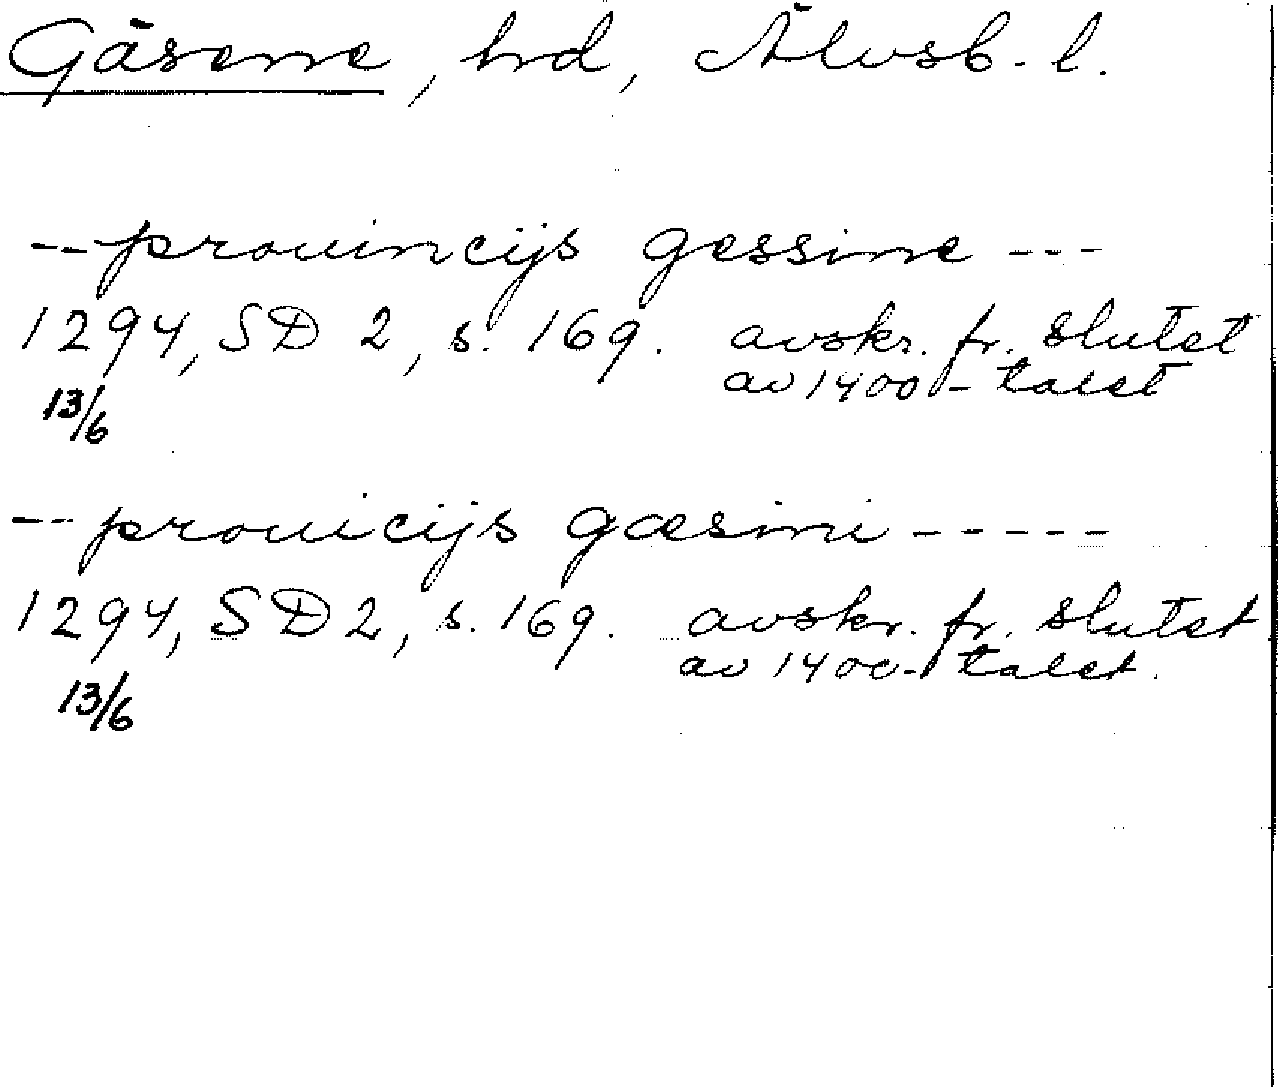 Gäsene, hrd, Älvsb. l.
-- prouincijs gessine ---
1294, SD 2, s. 169. avskr. fr. slutet
av 1400-talet
13/6
-- prouicijs gæsini -----
1294, SD 2, s. 169. avskr. fr. slutet
av 1400-talet.
13/6